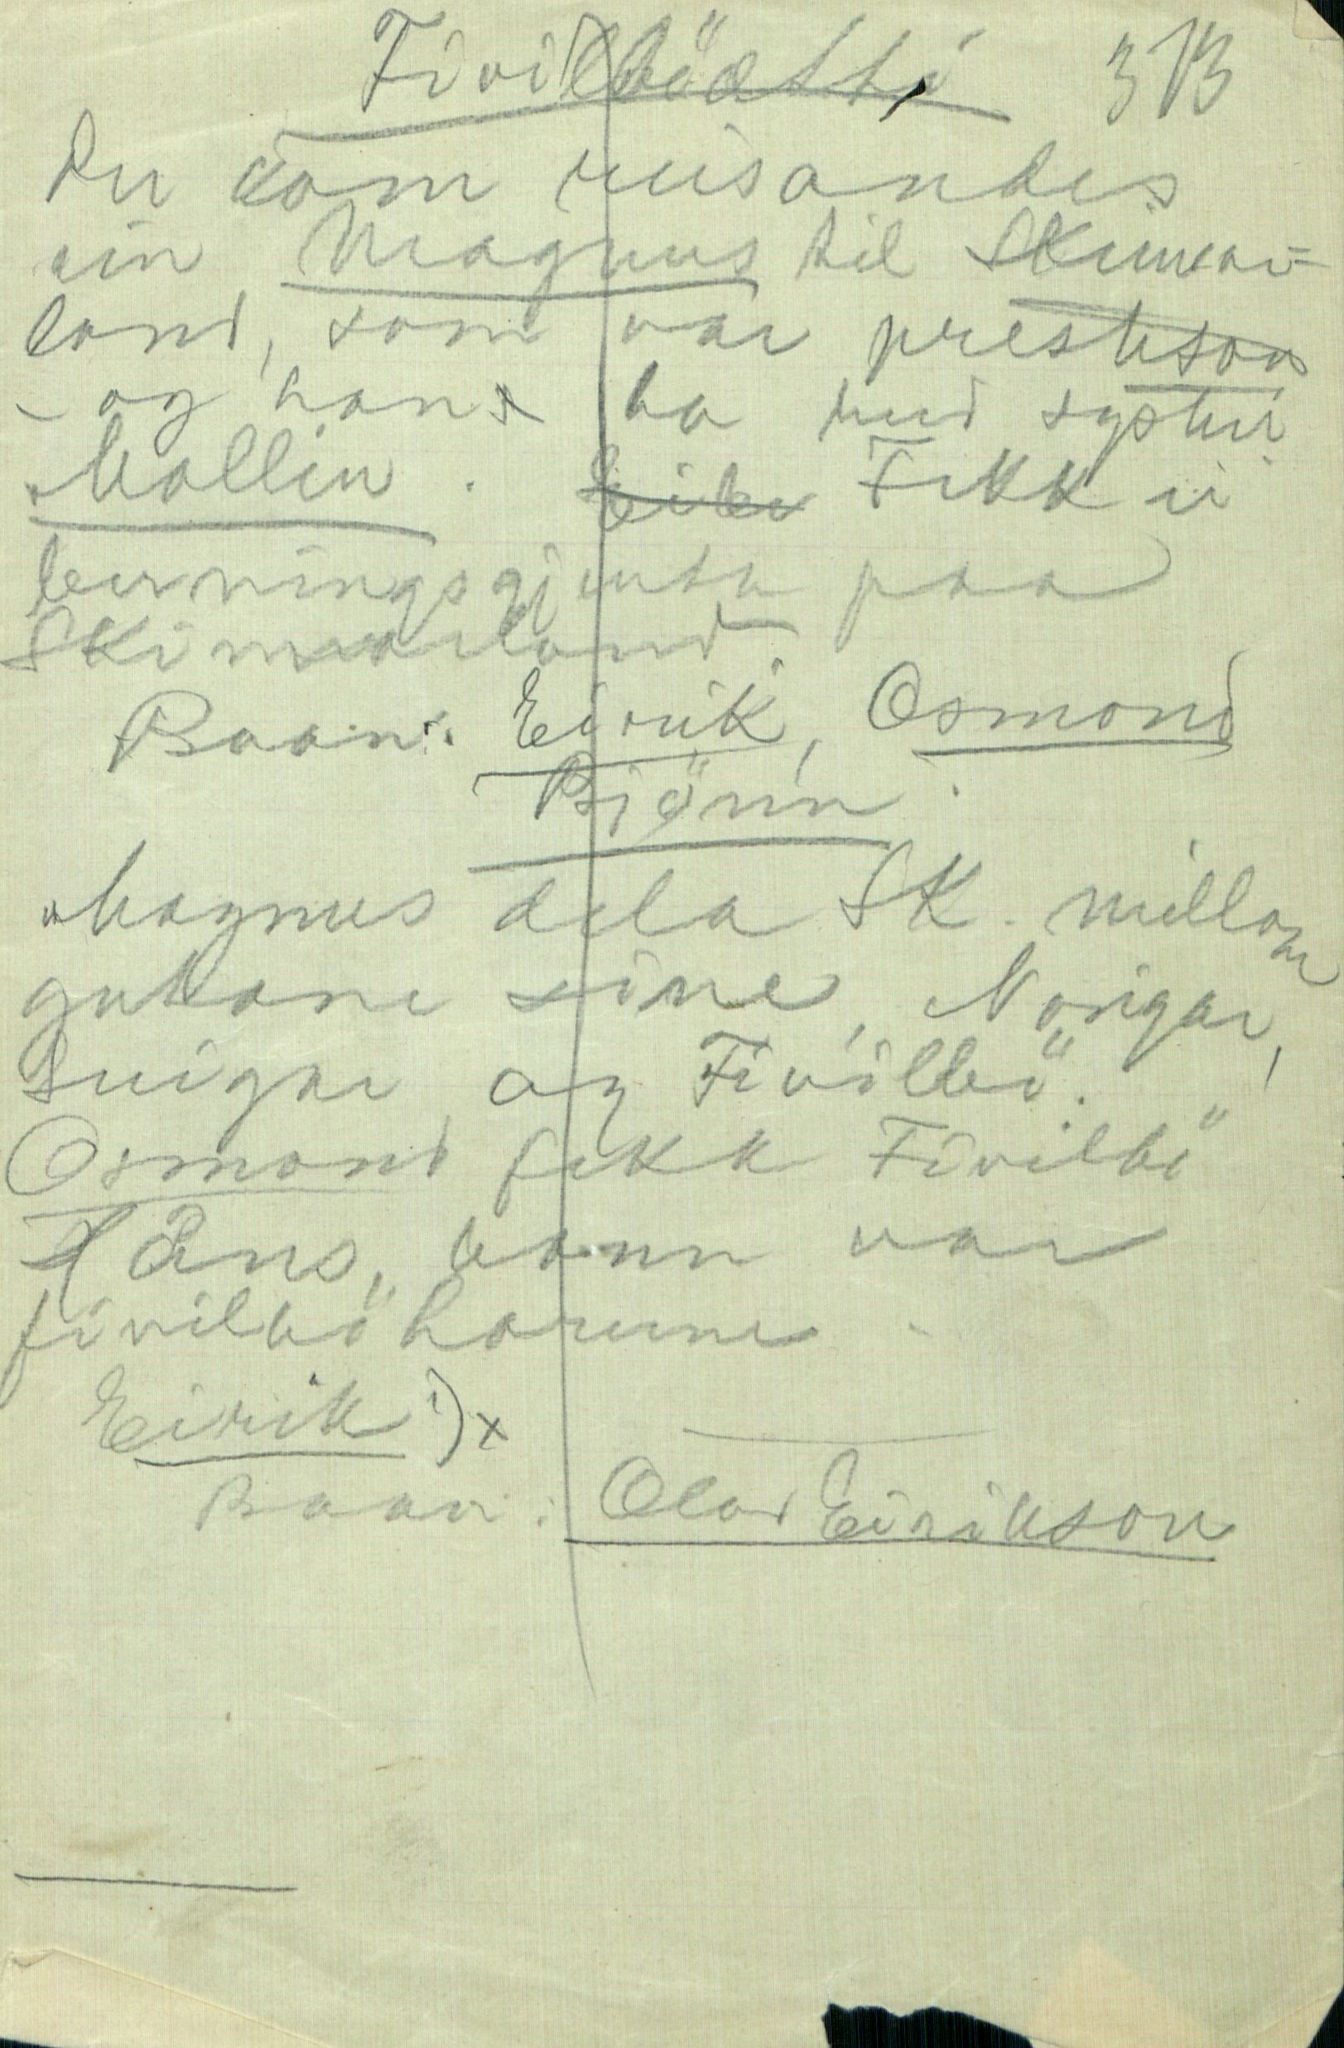 Fivilböætti 3 B
Der kom reisandes
ein Magnus til Skimar=
land, som var presteson
- og han ha med syster
Mallin. Eike Fekk ei
kerningsgjenta paa
Skimarland.
Baan: Eirik, Osmond
Björn.
Magnus dela Sk. millom
gutane sine, Norigar,
Suigar og Fivilbö.
Osmond fekk Fivilbö
"Hans, kann var
fivilböhorune
Eirik 1) x
Baan: Olav Eirikson